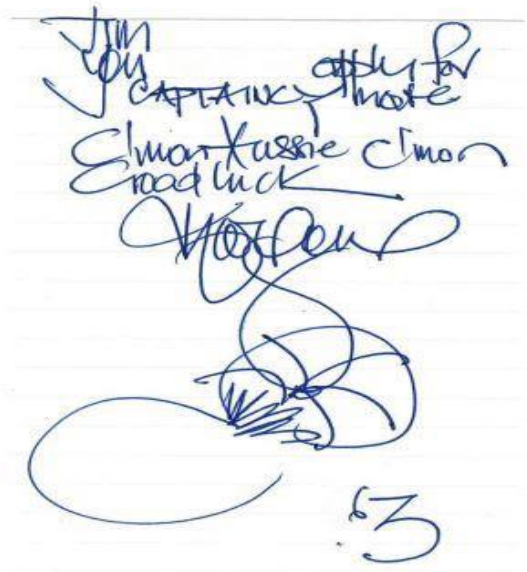 Jim
You apply for
CAPTAINCY mate
C'mon Aussie C'mon
Good luck